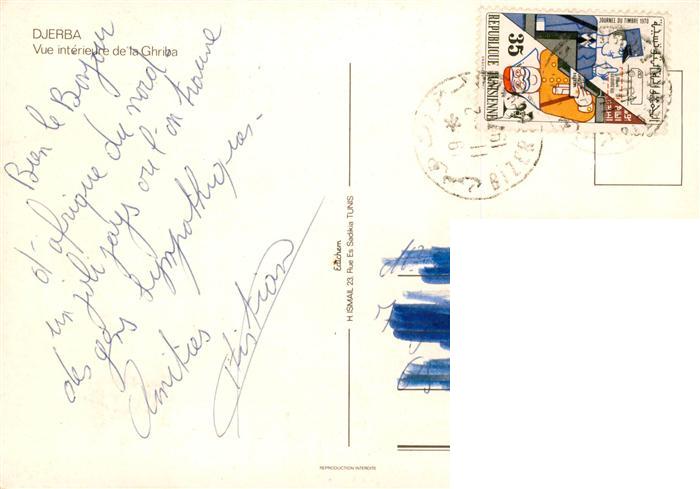 DJERBA
Vue intérieure de la Ghriba
Bien le Bonjour
d'afrique du nord
un joli pays ou l'on trouve
des gens sympathiques.
Amitiés
H. ISMAIL 23, Rue Es Sadikia TUNIS
REPRODUCTION INTERDITE
JOURNEE DU TIMBRE 1970
REPUBLIQUE TUNISIENNE
35
BIZERTE